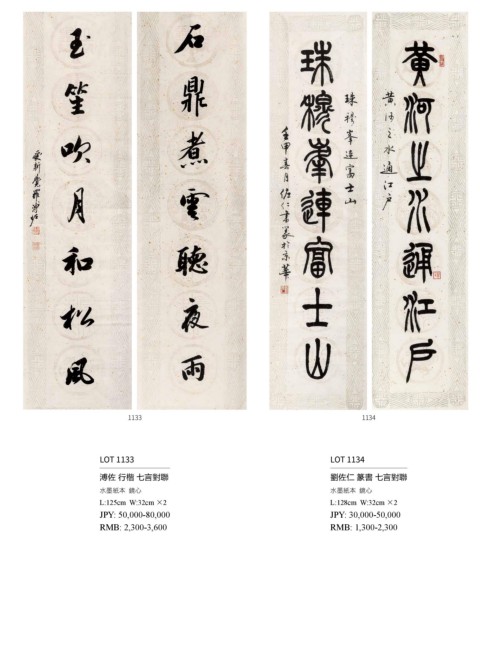 石鼎煮雲聽夜雨
玉笙吹月和松風
愛新覺羅溥佐
黄河之水通江戶
黄河之水通江戶
珠穆峯連富士山
珠穆峯連富士山
壬申春月佐仁書篆於京華
1133
1134
LOT 1133
溥佐 行楷 七言對聯
水墨紙本 鏡心
L:125cm W:32cm ×2
JPY: 50,000-80,000
RMB: 2,300-3,600
LOT 1134
劉佐仁 篆書 七言對聯
水墨紙本 鏡心
L:128cm W:32cm ×2
JPY: 30,000-50,000
RMB: 1,300-2,300